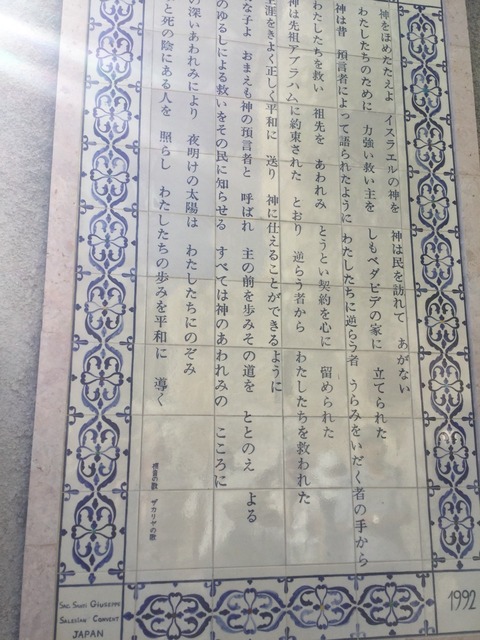 神をほめたたえよ イスラエルの神を 神は民を訪れて あがない
わたしたちのために 力強い救い主を しもべダビデの家に 立てられた
神は昔 預言者によって語られたように わたしたちに逆らう者 うらみをいだく者の手から
わたしたちを救い 祖先を あわれみ とうとい契約を心に 留められた
神は先祖アブラハムに約束された とおり 逆らう者から わたしたちを救われた
生涯をきよく正しく平和に 送り 神に仕えることができるように
な子よ おまえも神の預言者と 呼ばれ 主の前を歩みその道を ととのえ よる
のゆるしによる救いをその民に知らせる すべては神のあわれみの こころに
の深いあわれみにより 夜明けの太陽は わたしたちにのぞみ
と死の陰にある人を 照らし わたしたちの歩みを平和に 導く
の歌 ザカリヤの歌
GIUSEPPE
SALESIAN CONVENT
JAPAN
1992